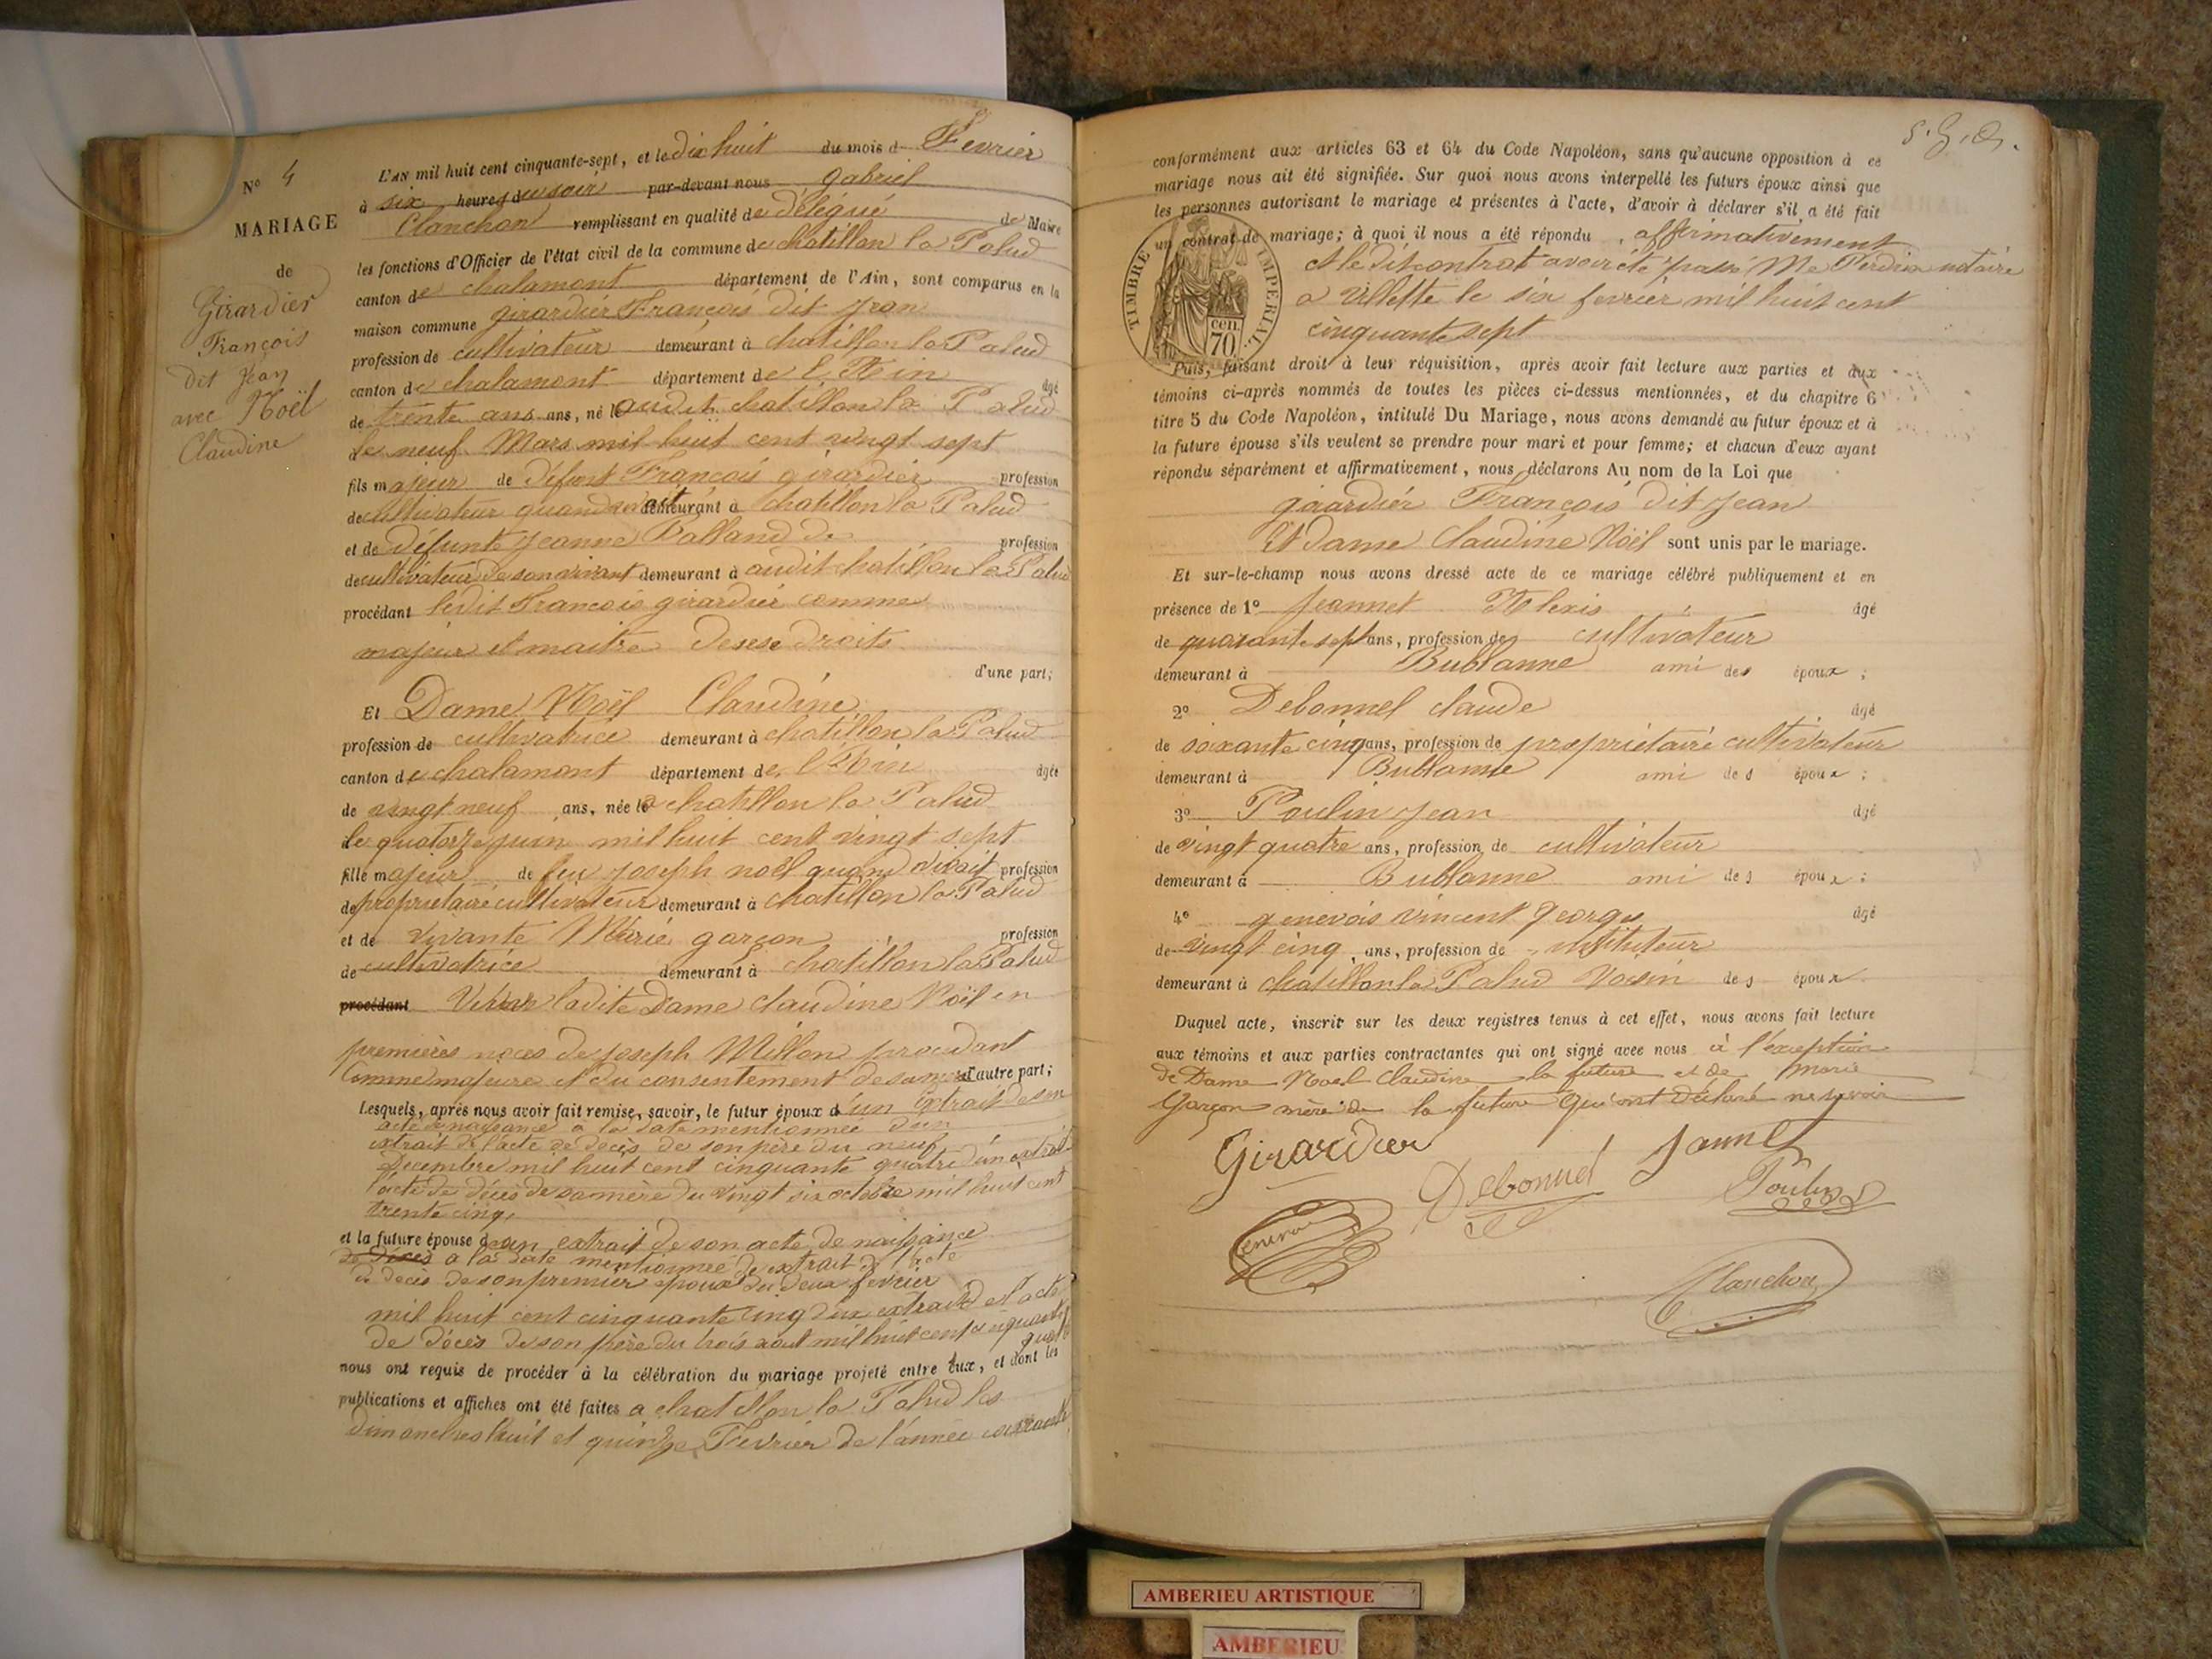 N° 4
MARIAGE
de
Girardier
François
dit Jean
avec Noël
Claudine
L'AN mil huit cent cinquante-sept, et le dix huit du mois d Fevrier
à six heures du soir par-devant nous gabriel
Clanchon remplissant en qualité de délégué de Maire
les fonctions d'Officier de l'état civil de la commune de chatillon la Palud
canton de chalamont département de l'Ain, sont comparus en la
maison commune girardier François dit Jean
profession de cultivateur demeurant à chatillon la Palud
canton de chalamont département de l'Ain âgé
de trente ans ans, né le audit chatillon la Palud
le neuf Mars mil huit cent vingt sept
fils majeur de défunt François girardier profession
de cultivateur quand vivait demeurant à chatillon la Palud
et de défunte Jeanne Balland de profession
de cultivateur de son vivant demeurant à audit chatillon la Palud
procédant ledit François girardier comme
majeur et maitre de sese droits
d'une part;
Et Dame Noël Claudine
profession de cultivatrice demeurant à chatillon la Palud
canton de chalamont département de l'Ain âgée
de vingt neuf ans, née le a chatillon la Palud
le quatorze juin mil huit cent vingt sept
fille majeur de feu joseph noël quand vivait profession
de propriétaire cultivateur demeurant à chatillon la Palud
et de vivante Marie garçon profession
de cultivatrice demeurant à chatillon la Palud
procédant ladite Dame claudine Noël en
premières noces de joseph Millon procedant
Comme majeure et du consentement de sa mère d'autre part;
Lesquels, après nous avoir fait remise, savoir, le futur époux d'un extrait de son
acte de naissance a la date mentionnée d'un
extrait de l'acte de decès de son père du neuf
Decembre mil huit cent cinquante quatre d'un extrait
l'acte de décès de sa mère du vingt six octobre mil huit cent
trente cinq,
et la future épouse d'un extrait de son acte de naissance
de décès a la date mentionnée de extrait de l'acte
de decès de son premier epoux du deux fevrier
mil huit cent cinquante cinq d'un extrait de l'acte
de décès de son père du trois aout mil huit cent cinquante
quatre
nous ont requis de procéder à la célébration du mariage projeté entre eux, et dont les
publications et affiches ont été faites a chatillon la Palud les
dimanches huit et quinze Fevrier de l'année courante
conformément aux articles 63 et 64 du Code Napoléon, sans qu'aucune opposition à ce
mariage nous ait été signifiée. Sur quoi nous avons interpellé les futurs époux ainsi que
les personnes autorisant le mariage et présentes à l'acte, d'avoir à déclarer s'il a été fait
un contrat de mariage; à quoi il nous a été répondu affirmativement
et le dit contrat avoir été passé Me Perdrix notaire
a Villette le six fevrier mil huit cent
cinquante sept
TIMBRE IMPERIAL
70 cen.
Puis, faisant droit à leur réquisition, après avoir fait lecture aux parties et aux
témoins ci-après nommés de toutes les pièces ci-dessus mentionnées, et du chapitre 6
titre 5 du Code Napoléon, intitulé Du Mariage, nous avons demandé au futur époux et à
la future épouse s'ils veulent se prendre pour mari et pour femme; et chacun d'eux ayant
répondu séparément et affirmativement, nous déclarons Au nom de la Loi que
girardier François dit Jean
Et Dame Claudine Noël sont unis par le mariage.
Et sur-le-champ nous avons dressé acte de ce mariage célébré publiquement et en
présence de 1° Jeannet Alexis âgé
de quarante sept ans, profession de cultivateur
demeurant à Bublanne ami des époux;
2° Debonnel claude âgé
de soixante cinq ans, profession de propriétaire cultivateur
demeurant à Bublanne ami des époux;
3° Poulin Jean âgé
de vingt quatre ans, profession de cultivateur
demeurant à Bublanne ami des époux;
4° genevois vincent georges âgé
de vingt cinq ans, profession de instituteur
demeurant à chatillon la Palud voisin des époux.
Duquel acte, inscrit sur les deux registres tenus à cet effet, nous avons fait lecture
aux témoins et aux parties contractantes qui ont signé avec nous à l'exception
de Dame Noel Claudine la future et de marie
Garçon mère de la future qui ont déclaré ne savoir
Girardier
Debonnel
Jannet
Poulin
Genevois
Clanchon
AMBERIEU ARTISTIQUE
AMBERIEU